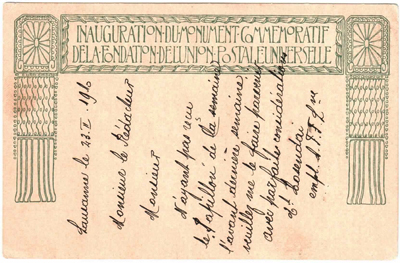 INAUGURATION·DU·MONUMENT·COMMEMORATIF
DE·LA·FONDATION·DE·L'UNION·POSTALE·UNIVERSELLE
Lausanne le 23. I 1910
Monsieur le Rédacteur
Monsieur
N'ayant pas reçu
le Papillon de la semaine
l'avant dernière semaine
veuillez me le faire parvenir
avec parfaite considération
empl.